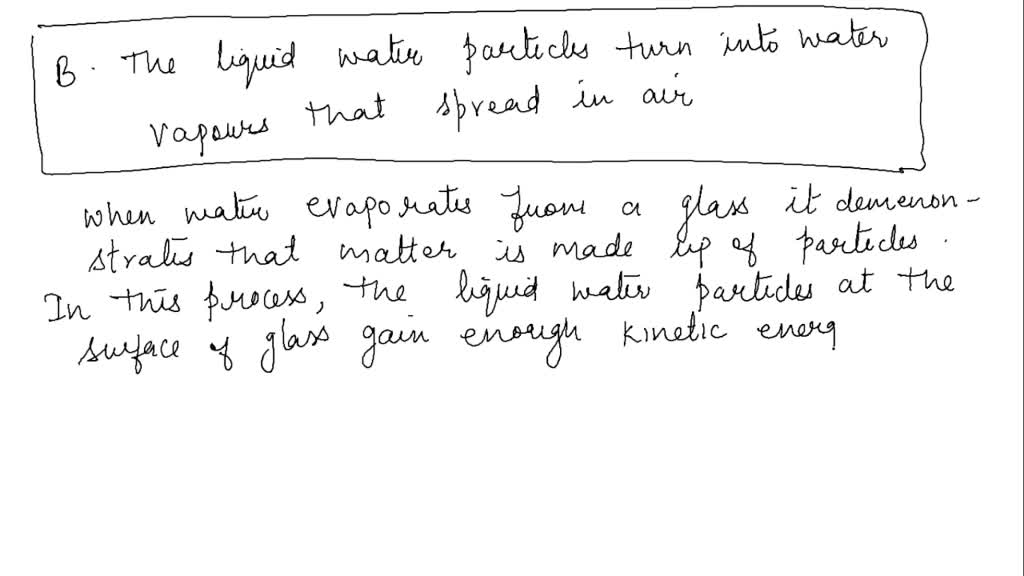 B. The liquid water particles turn into water
vapours that spread in air
when water evaporates from a glass it demenon-
strates that matter is made up of particles.
In this process, the liquid water particles at the
surface of glass gain enough kinetic energ